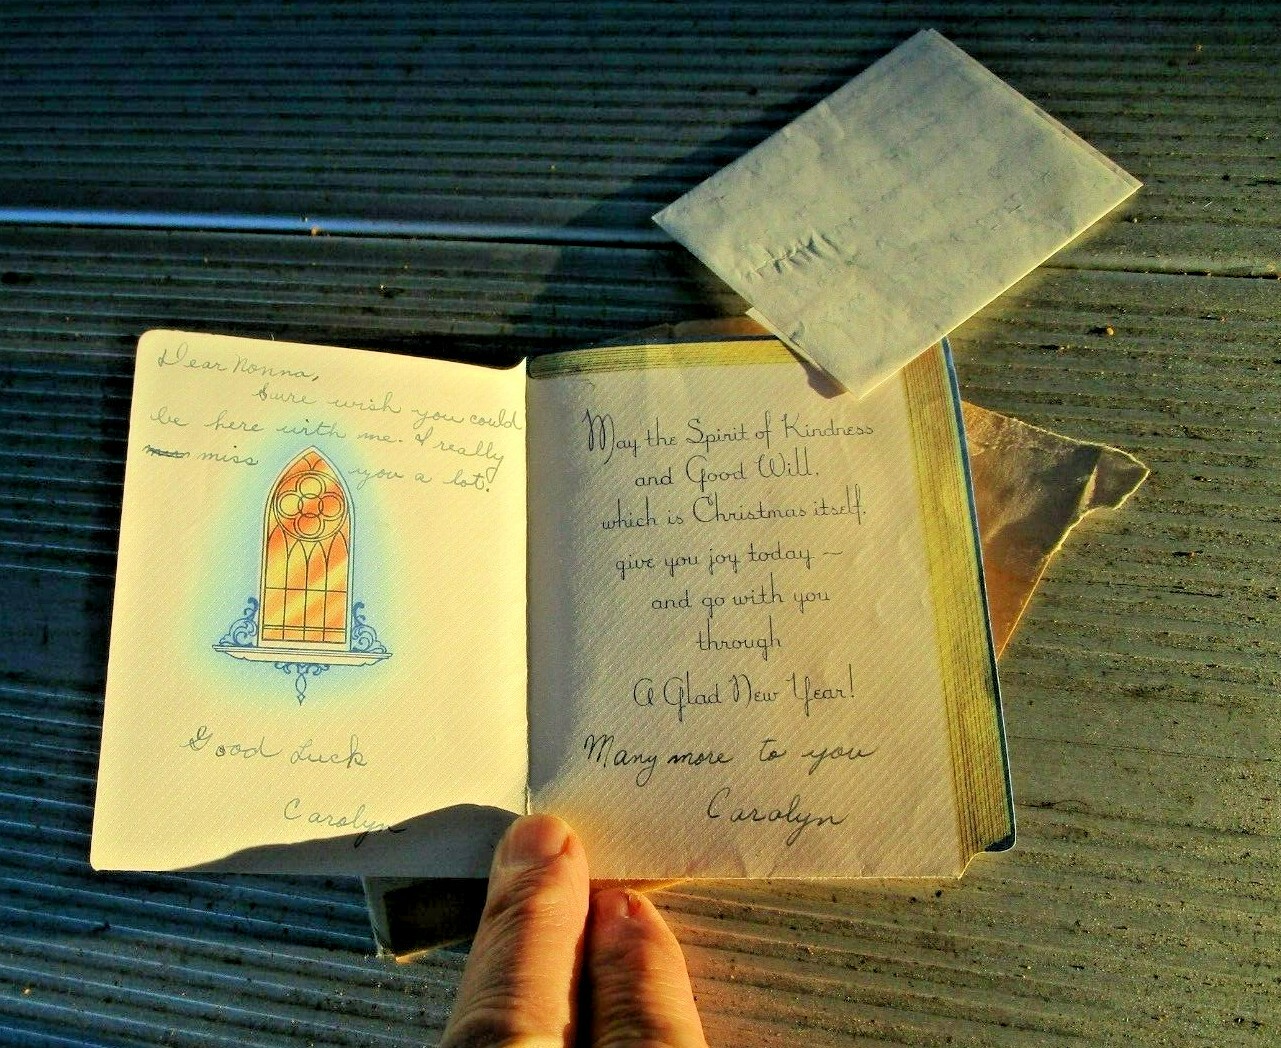 Dear Nonna,
Sure wish you could
be here with me. I really
miss you a lot!
Good Luck
Carolyn
May the Spirit of Kindness
and Good Will,
which is Christmas itself,
give you joy today ~
and go with you
through
A Glad New Year!
Many more to you
Carolyn